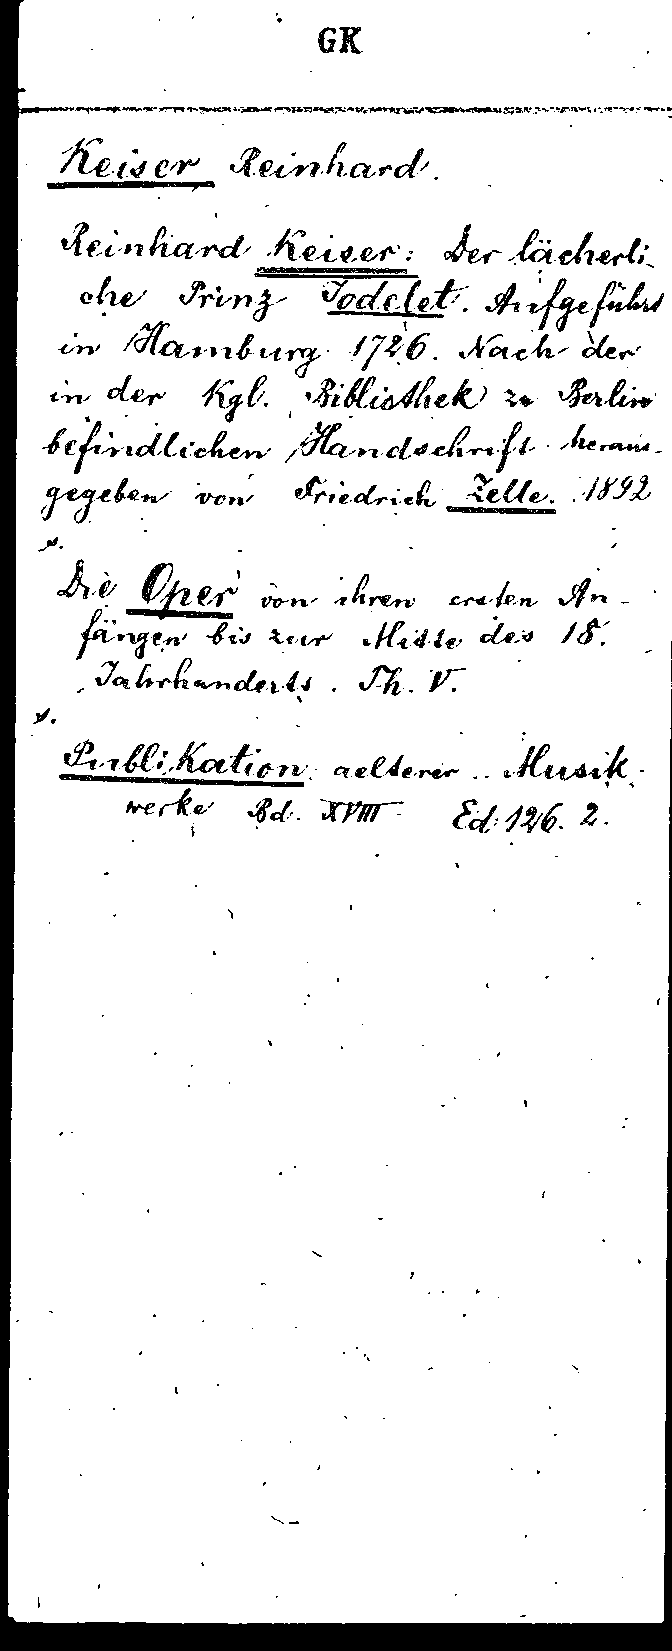 GK
Keiser Reinhard.
Reinhard Keiser: Der lächerli-
che Prinz Jodelet. Aufgeführt
in Hamburg 1726. Nach der
in der Kgl. Bibliothek zu Berlin
befindlichen Handschrift heraus-
gegeben von Friedrich Zelle. 1892
v.
Die Oper von ihren ersten An-
fängen bis zur Mitte des 18.
Jahrhunderts. Th. V.
v.
Publikation aelterer Musik-
werke Bd. XVIII Ed. 126. 2.